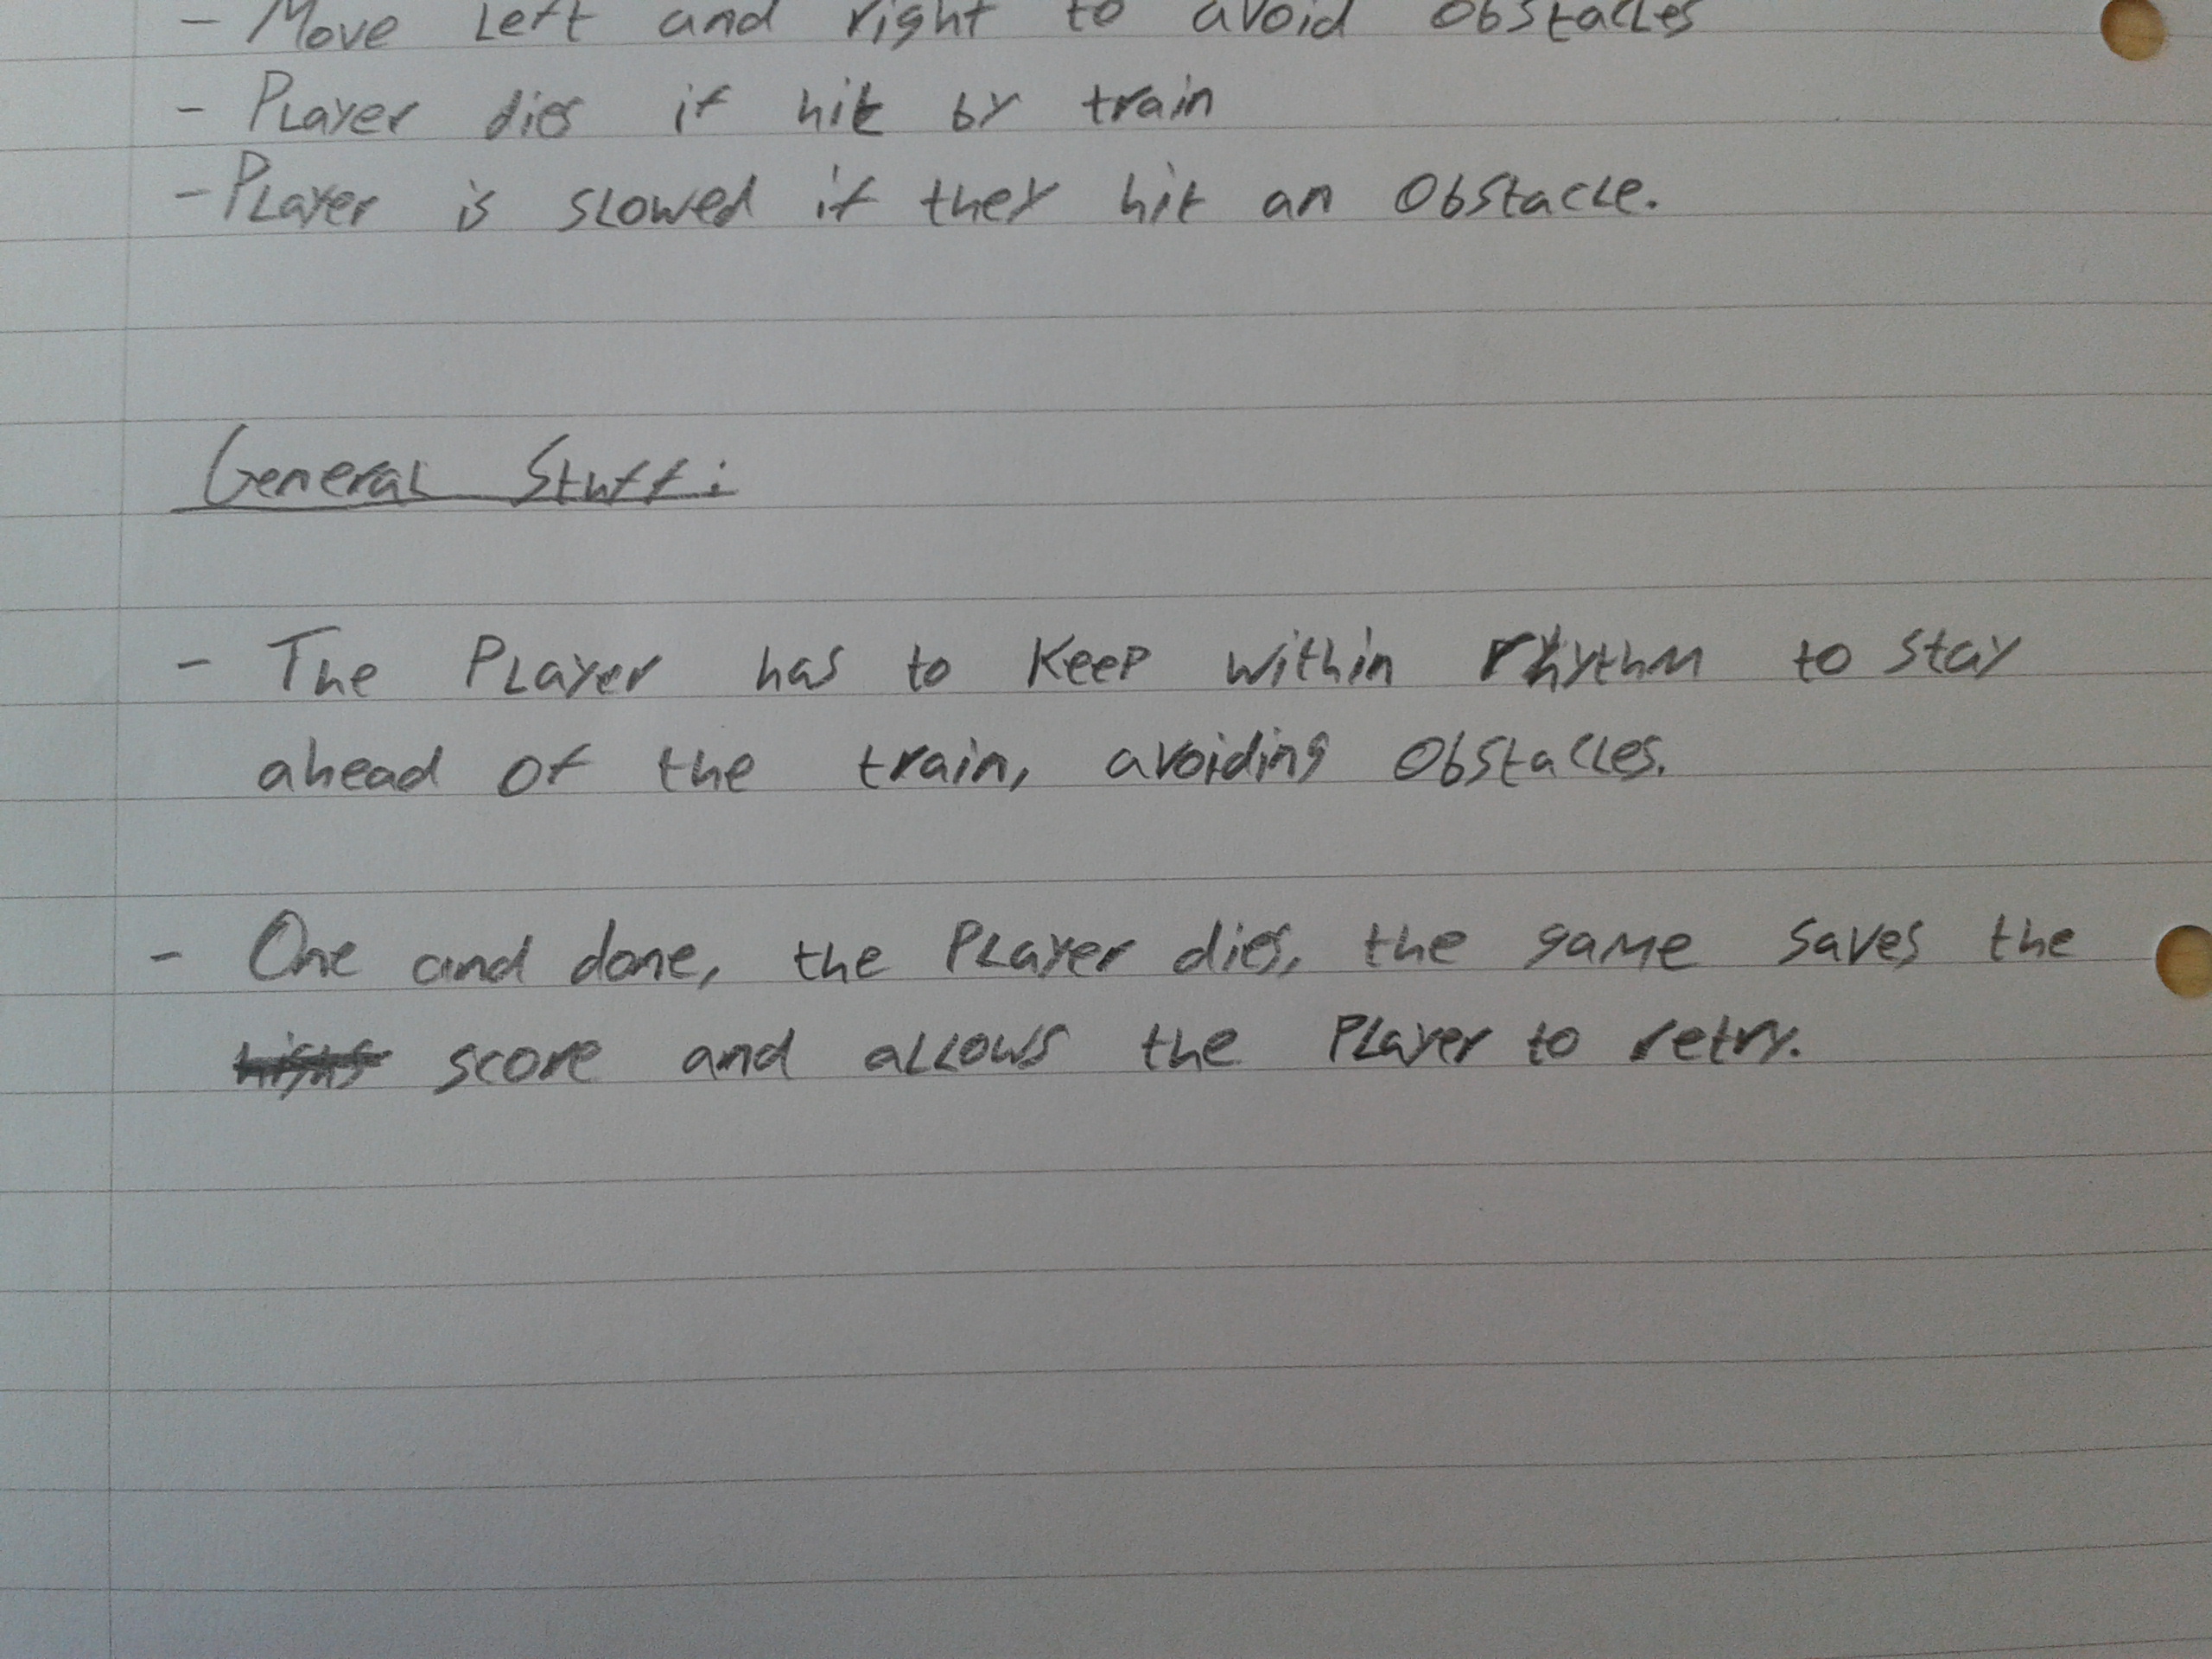 - Move left and right to avoid obstacles
- Player dies if hit by train
- Player is slowed if they hit an obstacle.
General Stuff:
- The Player has to keep within rhythm to stay
ahead of the train, avoiding obstacles.
- One and done, the Player dies, the game saves the
score and allows the Player to retry.